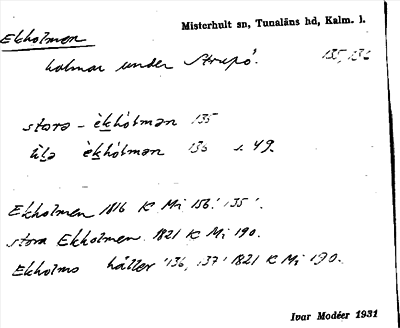 Misterhult sn, Tunaläns hd, Kalm. l.
Ekholmen
holmar under Strupö. 135, 136
stora - èkhólmən 135
lila èkhólmən 136 s. 49.
Ekholmen 1816 K Mi 156. '135'.
stora Ekholmen. 1821 K Mi 190.
Ekholms häller '136, 137' 1821 K Mi 190.
Ivar Modéer 1931